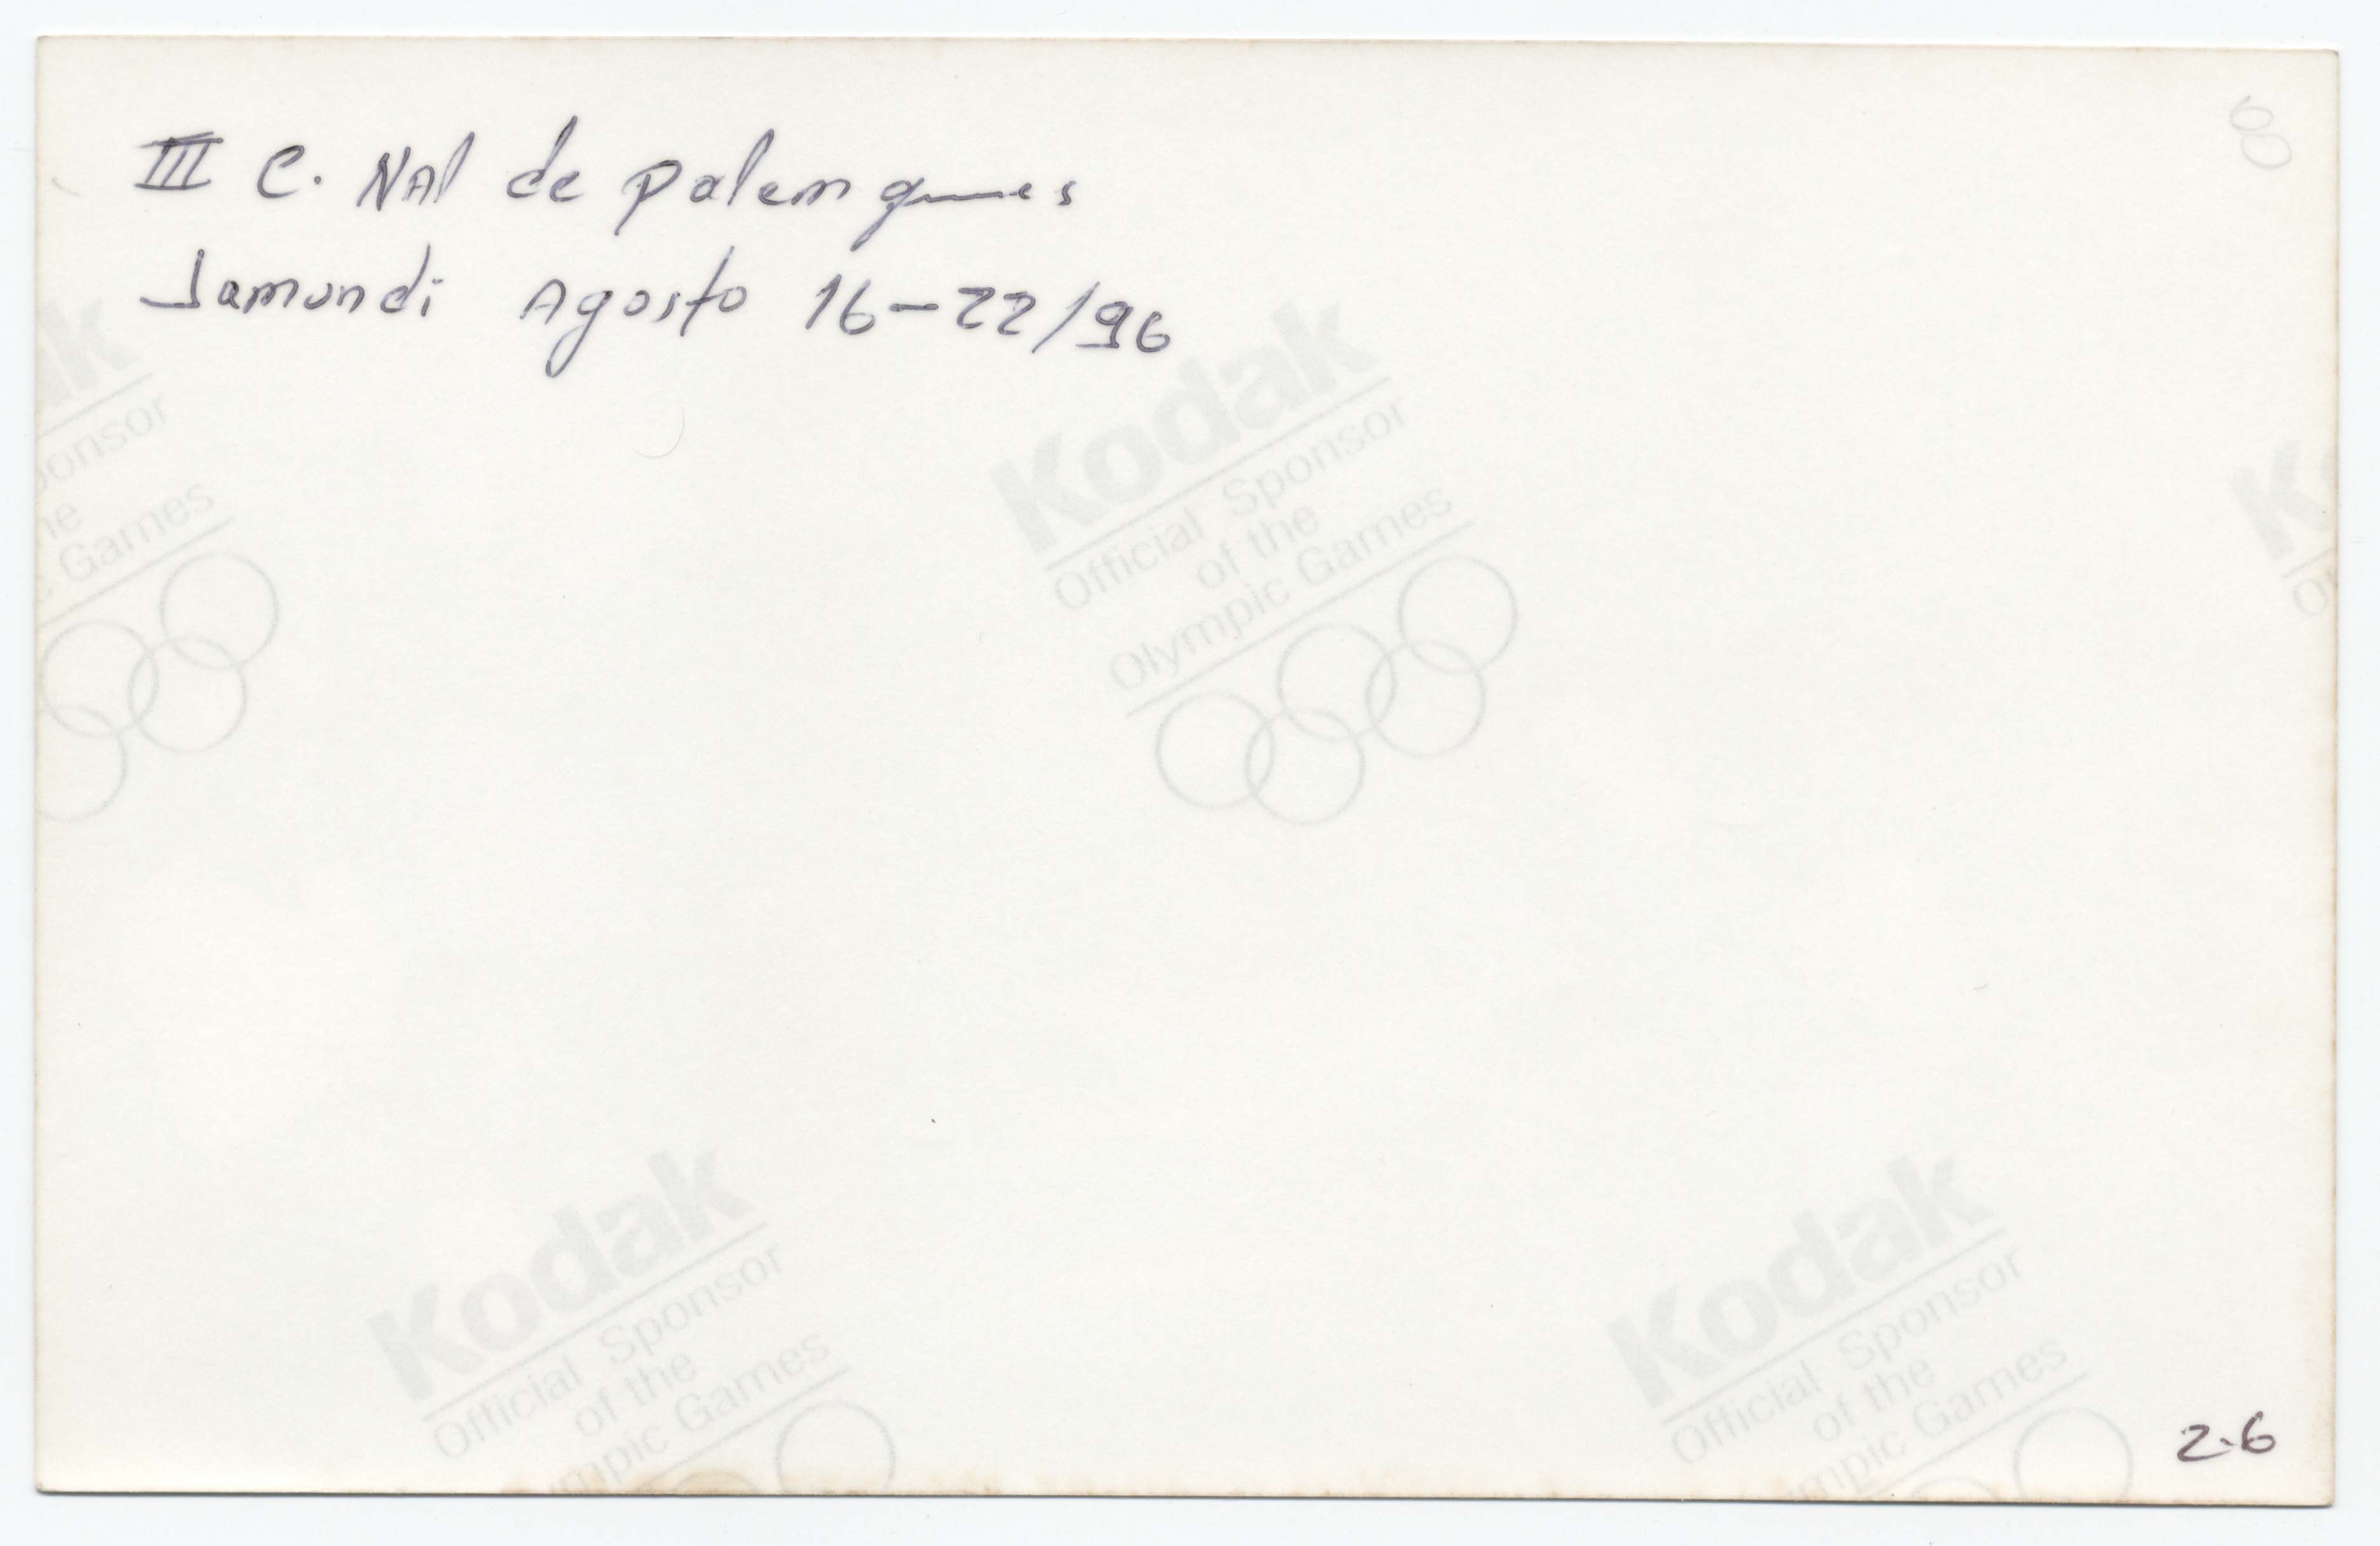 III C. NAl de palenques
Jamundi Agosto 16-22/96
80
Kodak
Official Sponsor
of the
Olympic Games
k
onsor
he
c Games
K
O
Kodak
Official Sponsor
of the
mpic Games
Kodak
Official Sponsor
of the
mpic Games
2-6